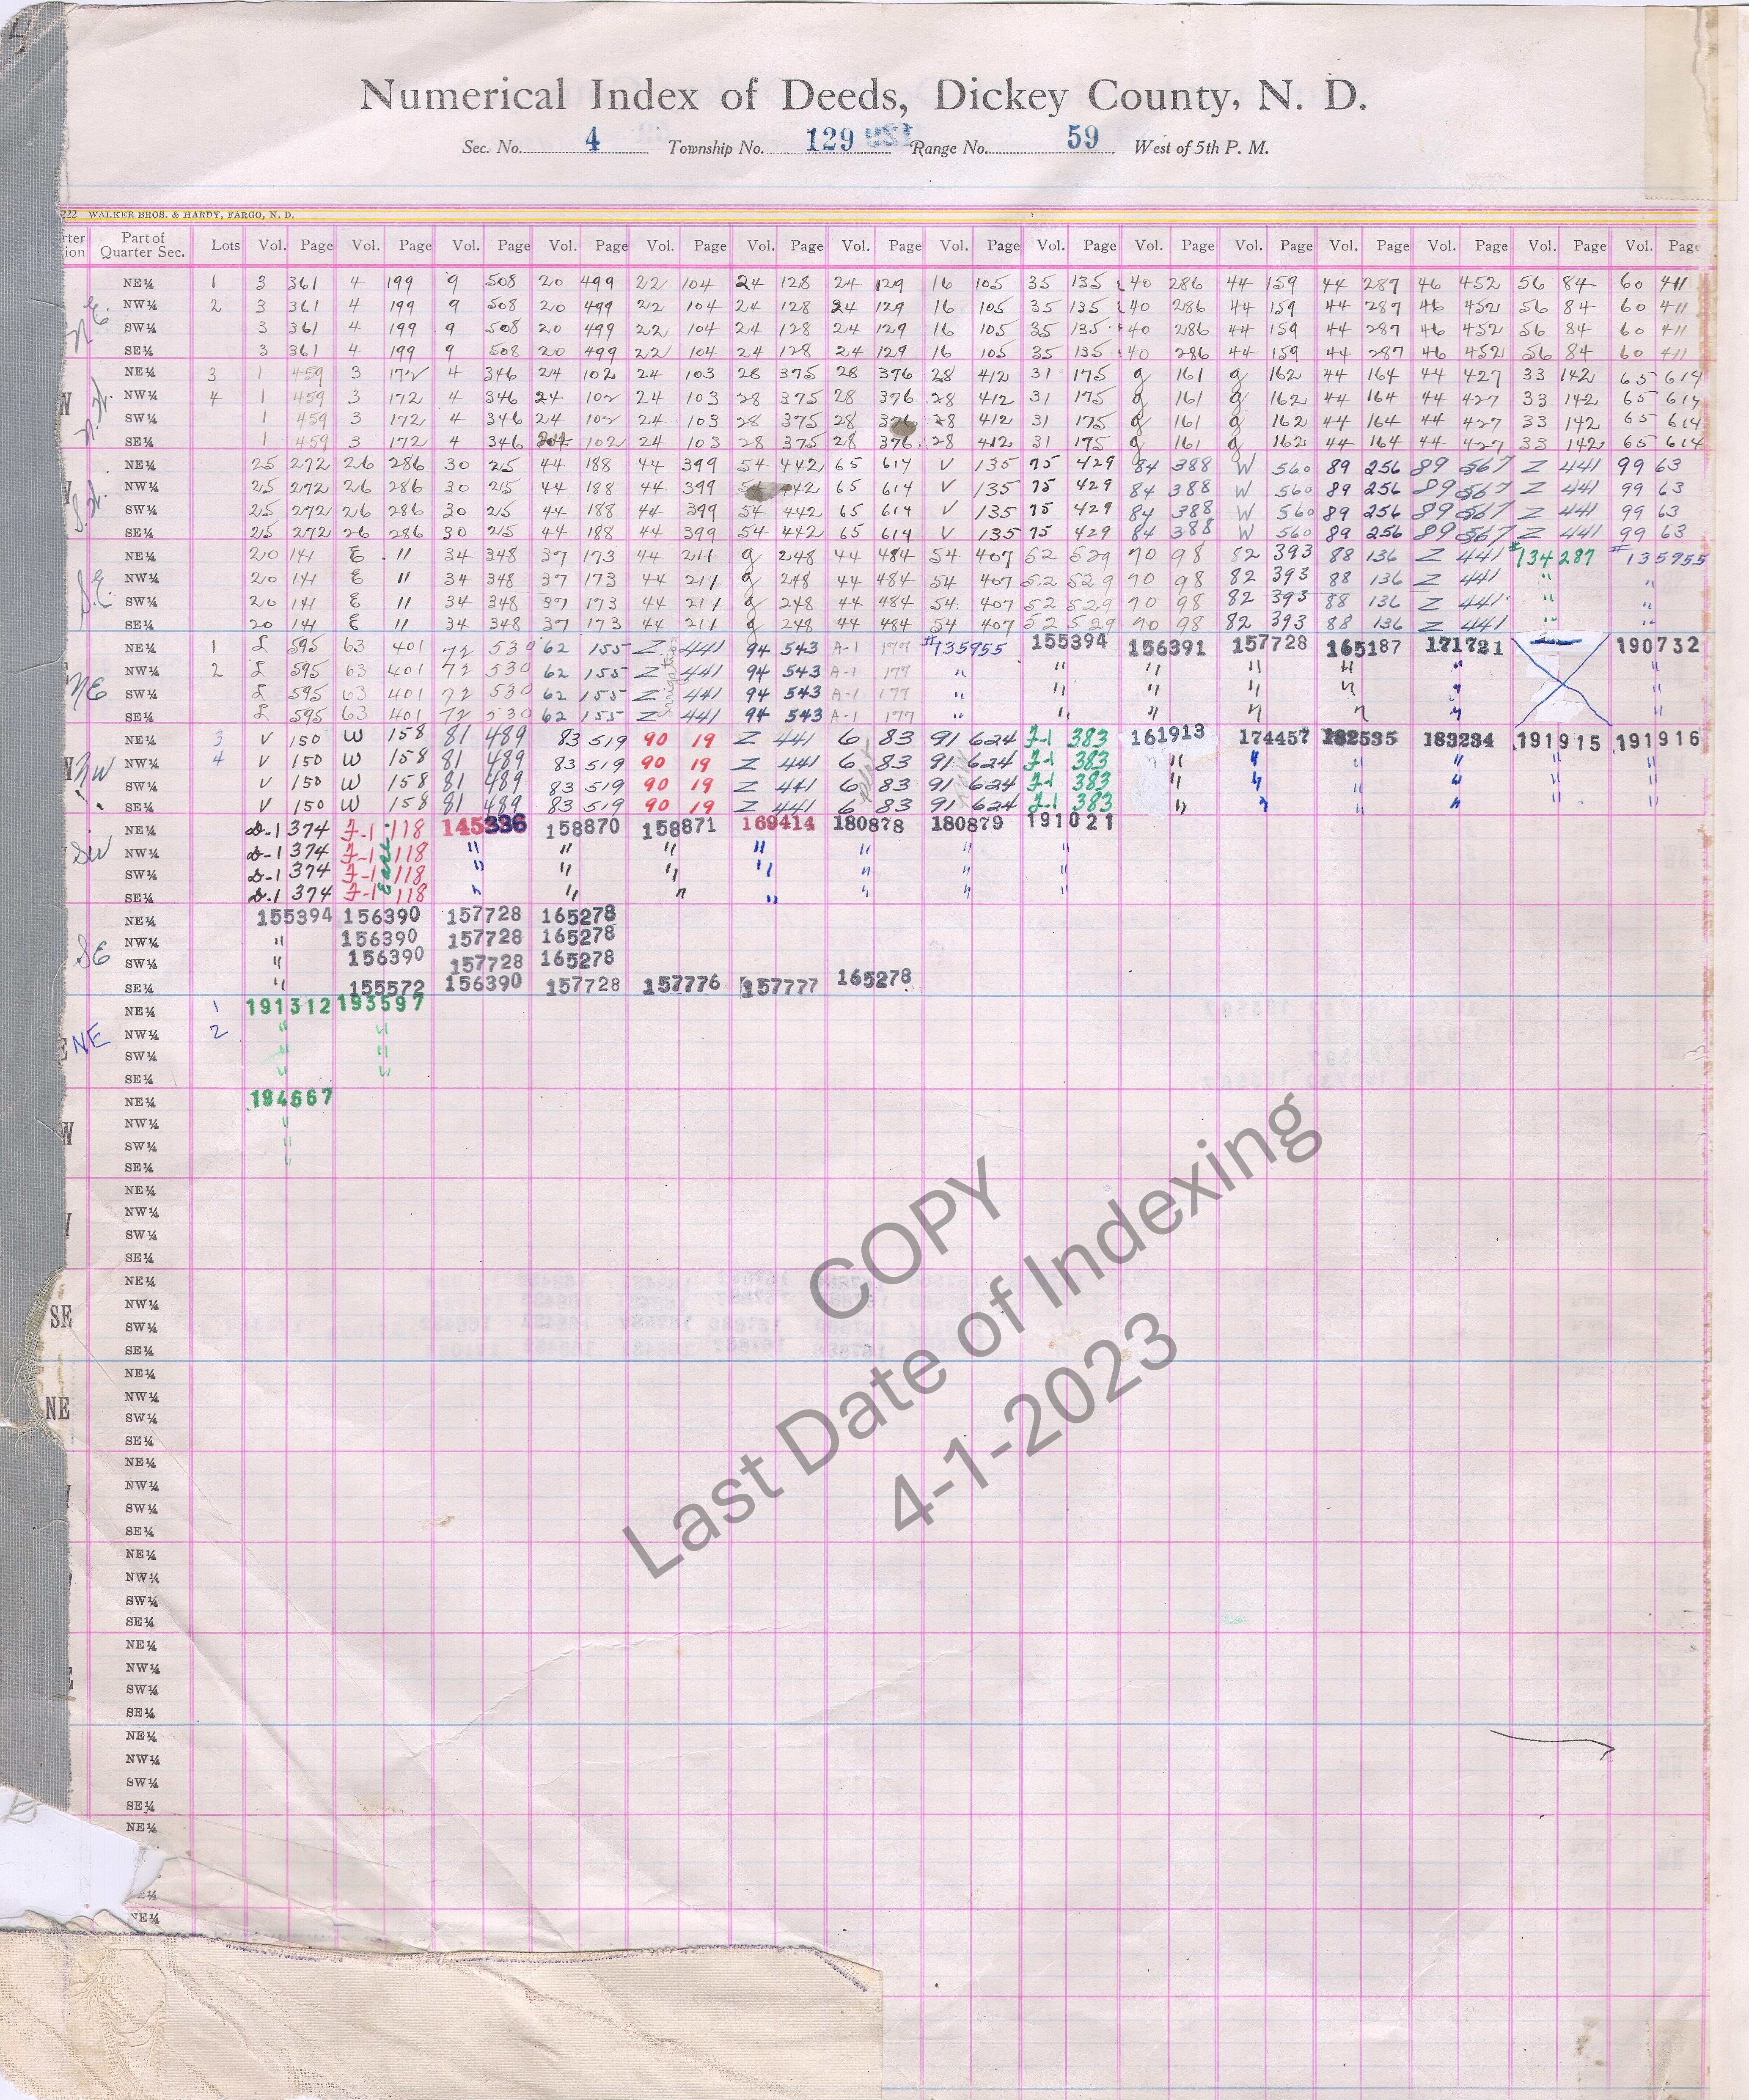 4
Numerical Index of Deeds, Dickey County, N. D.
Sec. No. 4 Township No. 129 Range No. 59 West of 5th P. M.
222 WALKER BROS. & HARDY, FARGO, N. D.
Part of Quarter Sec. Lots Vol. Page Vol. Page Vol. Page Vol. Page Vol. Page Vol. Page Vol. Page Vol. Page Vol. Page Vol. Page Vol. Page Vol. Page Vol. Page Vol. Page Vol. Page
NE¼ 1 3 361 4 199 9 508 20 499 22 104 24 128 24 129 16 105 35 135 40 286 44 159 44 287 46 452 56 84 60 411
N.E. NW¼ 2 3 361 4 199 9 508 20 499 22 104 24 128 24 129 16 105 35 135 40 286 44 159 44 287 46 452 56 84 60 411
SW¼ 3 361 4 199 9 508 20 499 22 104 24 128 24 129 16 105 35 135 40 286 44 159 44 287 46 452 56 84 60 411
SE¼ 3 361 4 199 9 508 20 499 22 104 24 128 24 129 16 105 35 135 40 286 44 159 44 287 46 452 56 84 60 411
NE¼ 3 1 459 3 172 4 346 24 102 24 103 28 375 28 376 28 412 31 175 g 161 g 162 44 164 44 427 33 142 65 614
N.W. NW¼ 4 1 459 3 172 4 346 24 102 24 103 28 375 28 376 28 412 31 175 g 161 g 162 44 164 44 427 33 142 65 614
SW¼ 1 459 3 172 4 346 24 102 24 103 28 375 28 376 28 412 31 175 g 161 g 162 44 164 44 427 33 142 65 614
SE¼ 1 459 3 172 4 346 24 102 24 103 28 375 28 376 28 412 31 175 g 161 g 162 44 164 44 427 33 142 65 614
NE¼ 25 272 26 286 30 25 44 188 44 399 54 442 65 614 V 135 75 429 84 388 W 560 89 256 89 567 Z 441 99 63
S.W. NW¼ 25 272 26 286 30 25 44 188 44 399 54 442 65 614 V 135 75 429 84 388 W 560 89 256 89 567 Z 441 99 63
SW¼ 25 272 26 286 30 25 44 188 44 399 54 442 65 614 V 135 75 429 84 388 W 560 89 256 89 567 Z 441 99 63
SE¼ 25 272 26 286 30 25 44 188 44 399 54 442 65 614 V 135 75 429 84 388 W 560 89 256 89 567 Z 441 99 63
NE¼ 20 141 E 11 34 348 37 173 44 211 g 248 44 484 54 407 52 529 70 98 82 393 88 136 Z 441 #134287 #135955
S.E. NW¼ 20 141 E 11 34 348 37 173 44 211 g 248 44 484 54 407 52 529 70 98 82 393 88 136 Z 441 " "
SW¼ 20 141 E 11 34 348 37 173 44 211 g 248 44 484 54 407 52 529 70 98 82 393 88 136 Z 441 " "
SE¼ 20 141 E 11 34 348 37 173 44 211 g 248 44 484 54 407 52 529 70 98 82 393 88 136 Z 441 " "
NE¼ 1 L 595 63 401 72 530 62 155 Z 441 94 543 A-1 177 #135955 155394 156391 157728 165187 171721 190732
NE NW¼ 2 L 595 63 401 72 530 62 155 Z 441 94 543 A-1 177 " " " " " " "
SW¼ L 595 63 401 72 530 62 155 Z 441 94 543 A-1 177 " " " " " " "
SE¼ L 595 63 401 72 530 62 155 Z 441 94 543 A-1 177 " " " " " " "
Irrigation
NE¼ 3 V 150 W 158 81 489 83 519 90 19 Z 441 6 83 91 624 F-1 383 161913 174457 182535 183234 191915 191916
NW NW¼ 4 V 150 W 158 81 489 83 519 90 19 Z 441 6 83 91 624 F-1 383 " " " " " "
SW¼ V 150 W 158 81 489 83 519 90 19 Z 441 6 83 91 624 F-1 383 " " " " " "
SE¼ V 150 W 158 81 489 83 519 90 19 Z 441 6 83 91 624 F-1 383 " " " " " "
NE¼ D-1 374 F-1 118 145336 158870 158871 169414 180878 180879 191021
SW NW¼ D-1 374 F-1 118 " " " " " " "
SW¼ D-1 374 F-1 118 " " " " " " "
SE¼ D-1 374 F-1 118 " " " " " " "
Ease
NE¼ 155394 156390 157728 165278
NW¼ " 156390 157728 165278
SE SW¼ " 156390 157728 165278
SE¼ " 155572 156390 157728 157776 157777 165278
NE¼ 1 191312 193597
NE NW¼ 2 " "
SW¼ " "
SE¼ " "
NE¼ 194667
W NW¼ "
SW¼ "
SE¼ "
NE¼
NW¼
SW¼
SE¼
NE¼
NW¼
SE SW¼
SE¼
NE¼
NE NW¼
SW¼
SE¼
NE¼
NW¼
SW¼
SE¼
NE¼
NW¼
SW¼
SE¼
NE¼
NW¼
SW¼
SE¼
NE¼
NW¼
SW¼
SE¼
NE¼
NE¼
COPY
Last Date of Indexing
4-1-2023